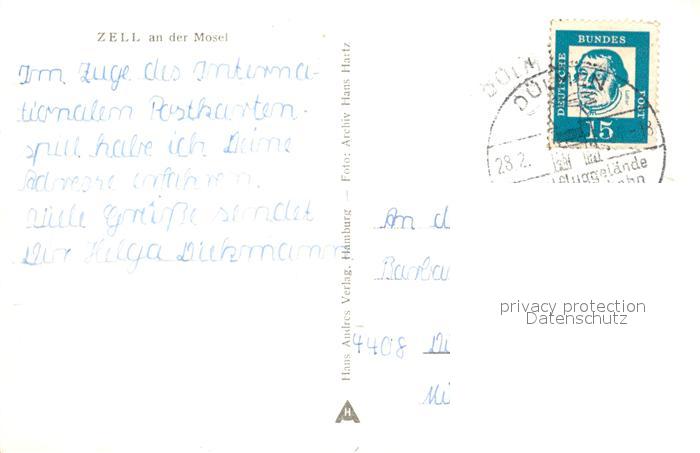 ZELL an der Mosel
Im Zuge des Interna-
tionalem Postkarten-
spill habe ich Deine
Adresse erfahren.
Viele Grüße sendet
Dir Helga Diekmann
Hans Andres Verlag, Hamburg — Foto: Archiv Hans Hartz
H
DEUTSCHE
BUNDES
POST
15
DÜLMEN
28.2.
An d
Barba
4408 Dü
privacy protection
Datenschutz